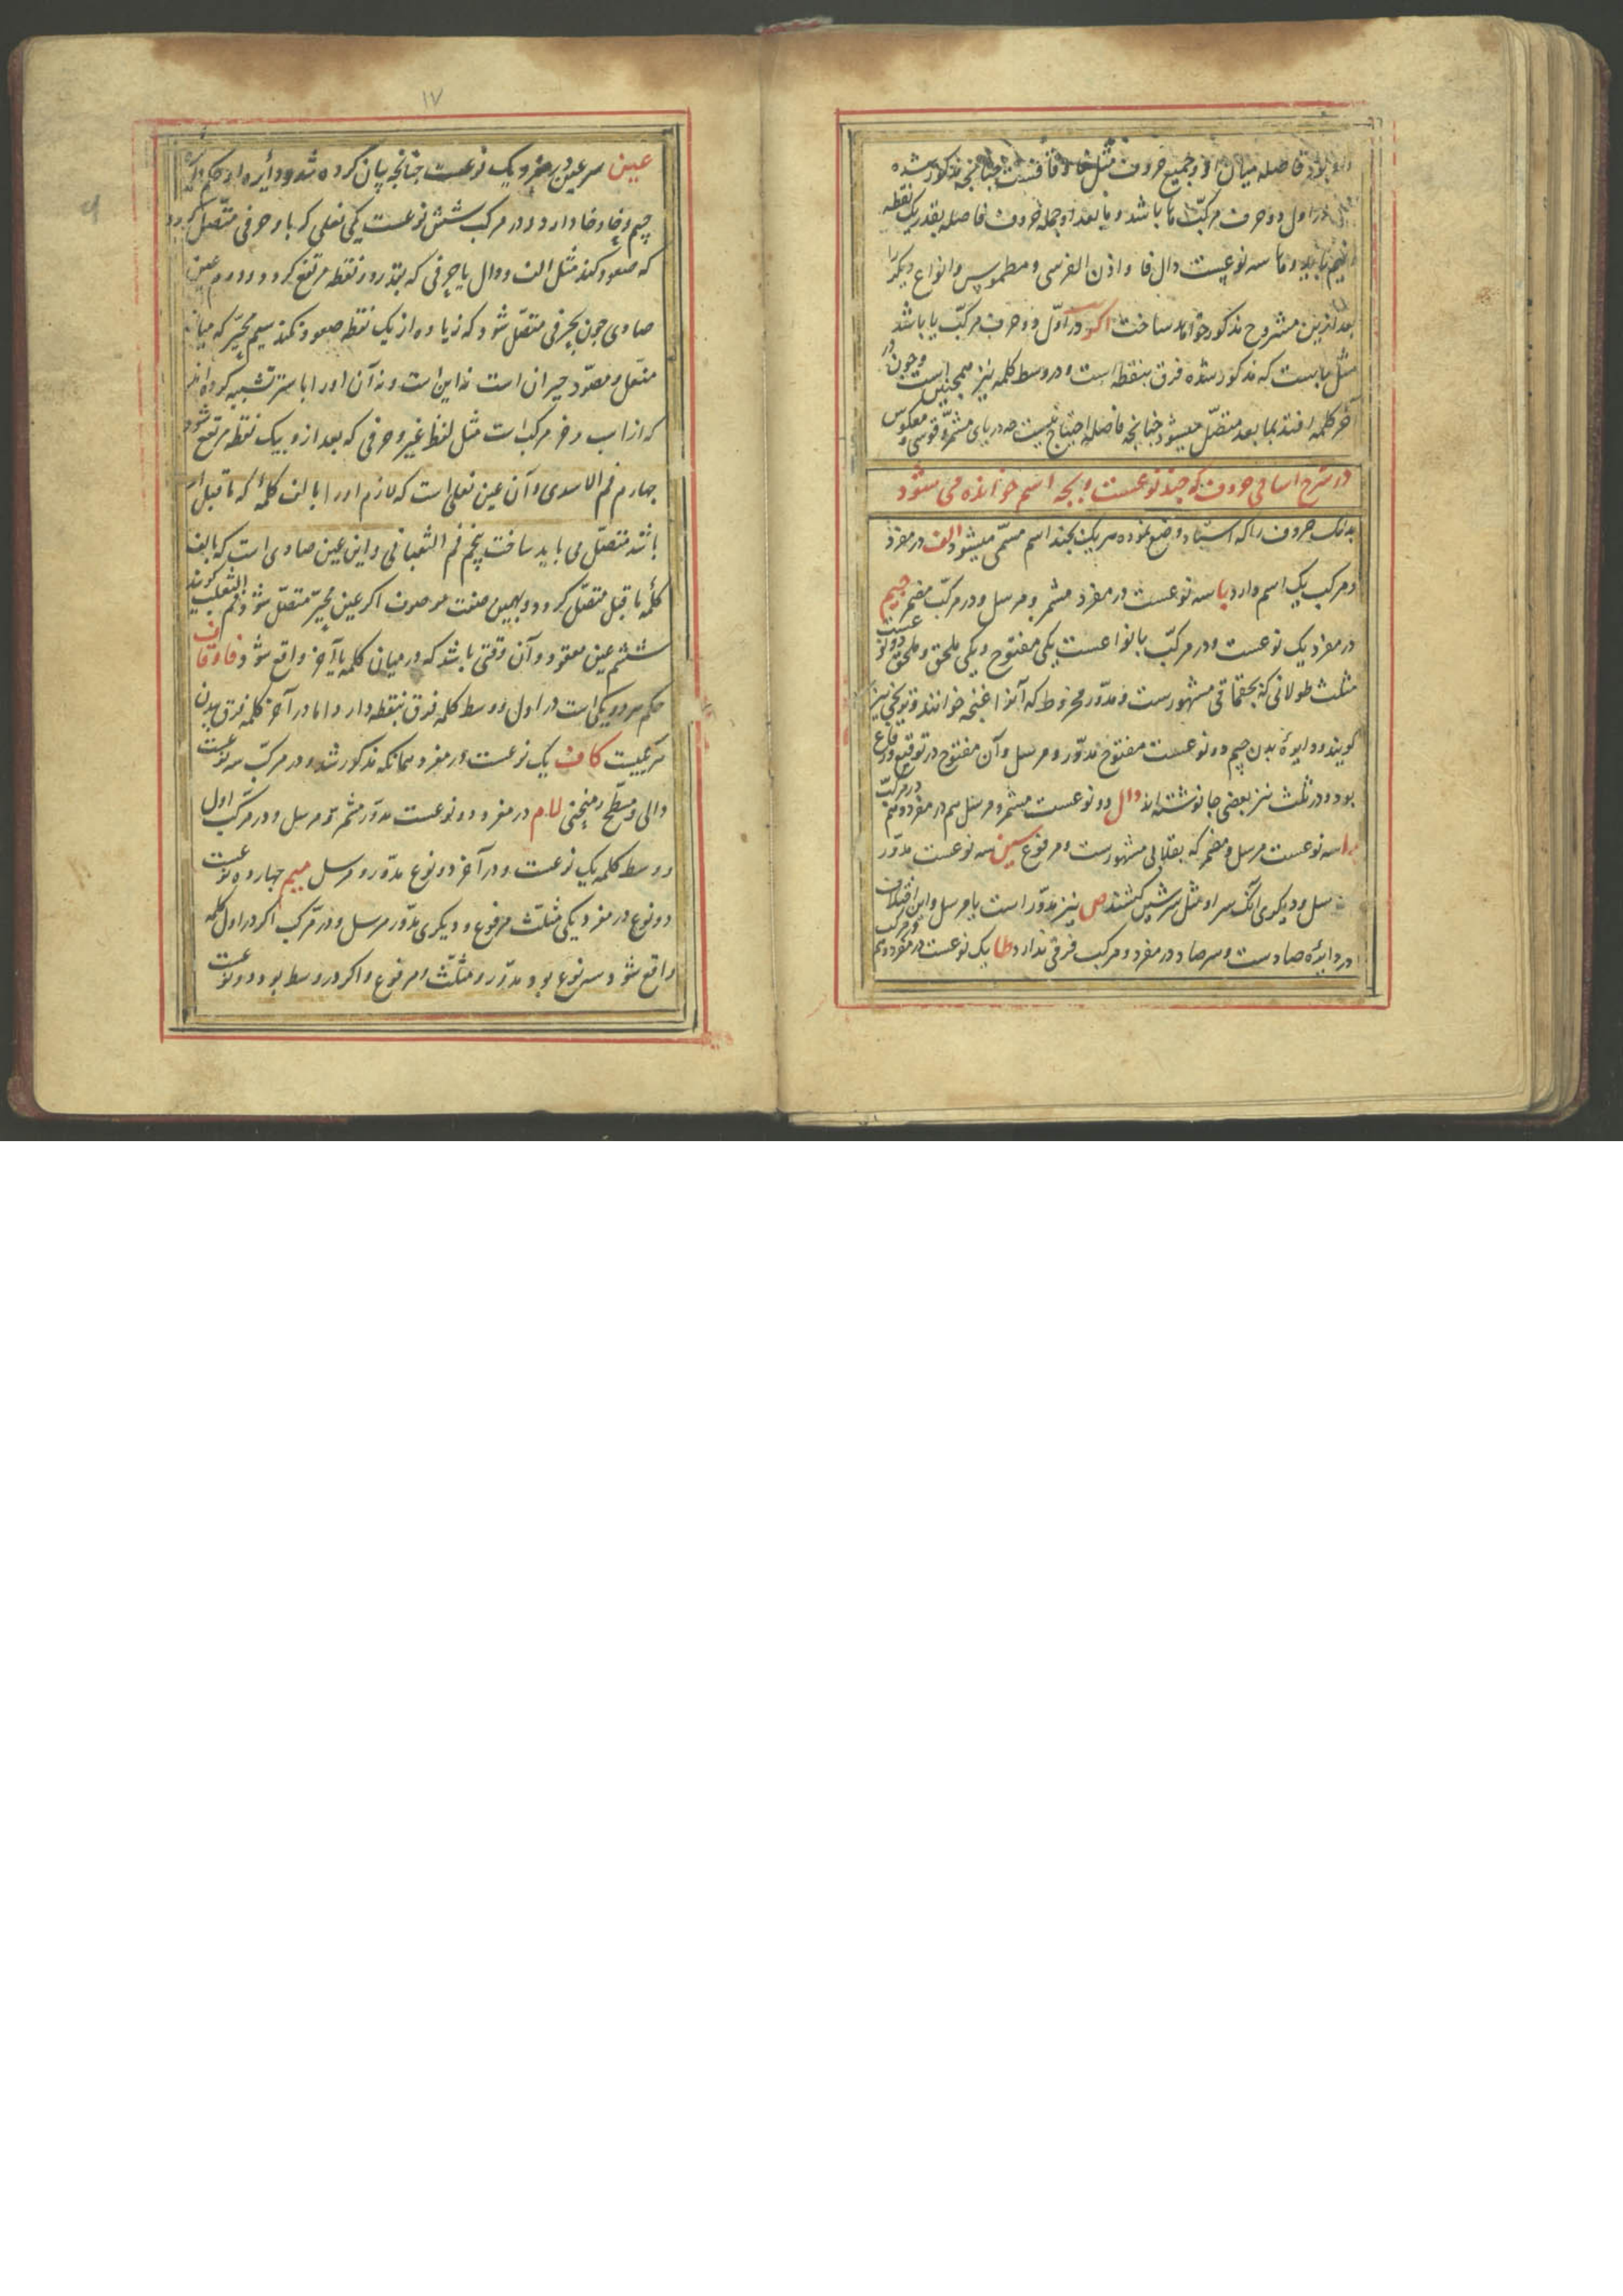 بود فاصله میان او و جمیع حروف مثل فا و قافست چنانچه مذکور شده
در اول دو حرف مرکب ها باشد و ما بعد او جمله حروف فاصله بقدر یک نقطه
و ها سه نوعیست دال فا و اذن الفرسی و مطموس و انواع دیکر را
بعد ازین مشروح مذکور خواهد ساخت اکر در اول دو حرف مرکب یا باشد
مثل باست که مذکور شده فرق بنقطه است و در وسط کلمه نیز همچنین است و چون در
آخر کلمه افتد بما بعد متصل میشود چنانچه فاصله احتیاج نیست چه در یای مشمر و قوسی و معکوس
در شرح اسامی حروف که چند نوعست و بچه اسم خوانده می شود
بدانک حروف را که استاد وضع نموده هر یک بچند اسم مسمی میشود الف در مفرد
و مرکب یک اسم دارد با سه نوعست در مفرد مشمر و مرسل و در مرکب مضمر جیم
در مفرد یک نوعست و در مرکب بانواعست یکی مفتوح و یکی ملحق و ملحق دو نوعست
مثلث طولانی که بچقماقی مشهورست و مدور مخروط که آنرا غنچه خوانند و نیز
کویند و دایرهٔ بدن جیم دو نوعست مفتوح مدور و مرسل و آن مفتوح در توقیع و رقاع
بود و در ثلث نیز بعضی جا نوشته اند دال دو نوعست مشمر و مرسل هم در مفرد و هم در مرکب
را سه نوعست مرسل و مضمر که بقلابی مشهورست و مرفوع سین سه نوعست مدور
و مرسل و دیکری آنک سر او مثل سر شین کشند ص نیز مدور است یا مرسل و این اختلاف
در دایرهٔ صادست و سر صاد در مفرد و مرکب فرقی ندارد طا یک نوعست در مفرد و هم در مرکب
١٧
عین سر عین در مفرد یک نوعست چنانچه بیان کرده شد و دایره او حکم دایره
جیم و حا و خا دارد و در مرکب شش نوعست یکی نعلی که با حرفی متصل کردد
که صعود کند مثل الف و دال یا حرفی که بقدر دو نقطه مرتفع کردد دوم عین
صادی چون بحرفی متصل شود که زیاده از یک نقطه صعود نکند سیم محیر که میانه
منعل و مصود حیران است نه این است و نه آن او را با ستر تشبیه کرده اند
که از اب و خر مرکب است مثل لفظ غیر و حرفی که بعد از و بیک نقطه مرتفع شود
چهارم فم الاسدی و آن عین نعلی است که لازم او را با الف کلمهٔ که ما قبل او
باشد متصل می باید ساخت پنجم فم الثعبانی و این عین صادی است که بالف
کلمهٔ ما قبل متصل کردد و بهمین صفت موصوف اکر عین محیر متصل شود فم الثعلب کویند
ششم عین معقود و آن وقتی باشد که در میان کلمه یا آخر واقع شود فا و قاف
حکم هر دو یکی است در اول و وسط کلمه فرق بنقطه دارد اما در آخر کلمه فرق ببدن
مرکبیت کاف یک نوعست در مفرد همانکه مذکور شد و در مرکب سه نوعست
دالی و مسطح و منحنی لام در مفرد دو نوعست مدور مشمر و مرسل و در مرکب اول
و وسط کلمه یک نوعست و در آخر دو نوع مدور و مرسل میم چهارده نوعست
دو نوع در مفرد یکی مثلث مرفوع و دیکری مدور مرسل و در مرکب اکر در اول کلمه
واقع شود سه نوع بود مدور و مثلث و مرفوع و اکر در وسط بود دو نوعست